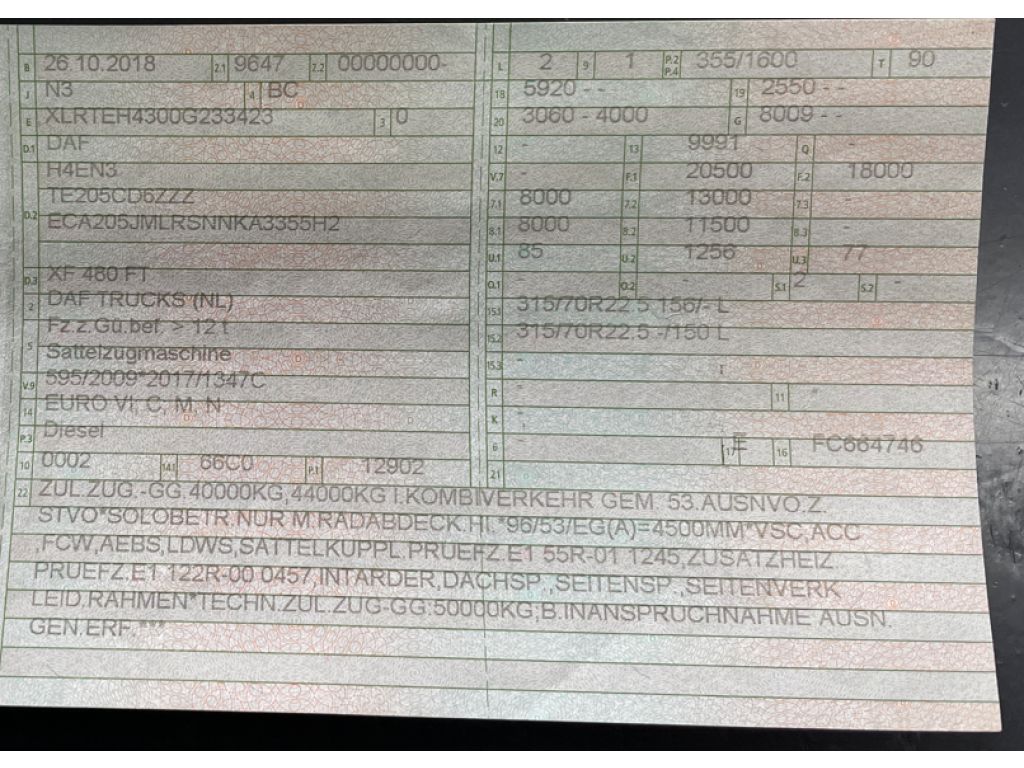 B 26 10.2018 2.1 9647 2.2 00000000-
J N3 4 BC
E XLRTEH4300G233423 3 0
D.1 DAF
H4EN3
TE205CD6ZZZ
D.2 ECA205JMLRSNNKA3355H2
D.3 XF 480 FT
2 DAF TRUCKS (NL)
Fz.z.Gü.bef. > 12 t
5 Sattelzugmaschine
V.9 595/2009*2017/1347C
14 EURO VI, C, M, N
P.3 Diesel
10 0002 14.1 66C0 P.1 12902
L 2 9 1 P.2 P.4 355/1600 T 90
18 5920 - - 19 2550 - -
20 3060 - 4000 G 8009 - -
12 - 13 9991 Q -
V.7 - F.1 20500 F.2 18000
7.1 8000 7.2 13000 7.3 -
8.1 8000 8.2 11500 8.3 -
U.1 85 U.2 1256 U.3 77
O.1 - O.2 - S.1 2 S.2 -
15.1 315/70R22.5 156/- L
15.2 315/70R22.5 -/150 L
15.3 -
R - 11 -
K -
6 - 17 E 16 FC664746
21
22 ZUL.ZUG.-GG.40000KG,44000KG I.KOMBIVERKEHR GEM. 53.AUSNVO.Z.
STVO*SOLOBETR.NUR M.RADABDECK.HI.*96/53/EG(A)=4500MM*VSC,ACC
,FCW,AEBS,LDWS,SATTELKUPPL.PRUEFZ.E1 55R-01 1245,ZUSATZHEIZ.
PRUEFZ.E1 122R-00 0457,INTARDER,DACHSP.,SEITENSP.,SEITENVERK
LEID.RAHMEN*TECHN.ZUL.ZUG-GG:50000KG,B.INANSPRUCHNAHME AUSN.
GEN.ERF.***